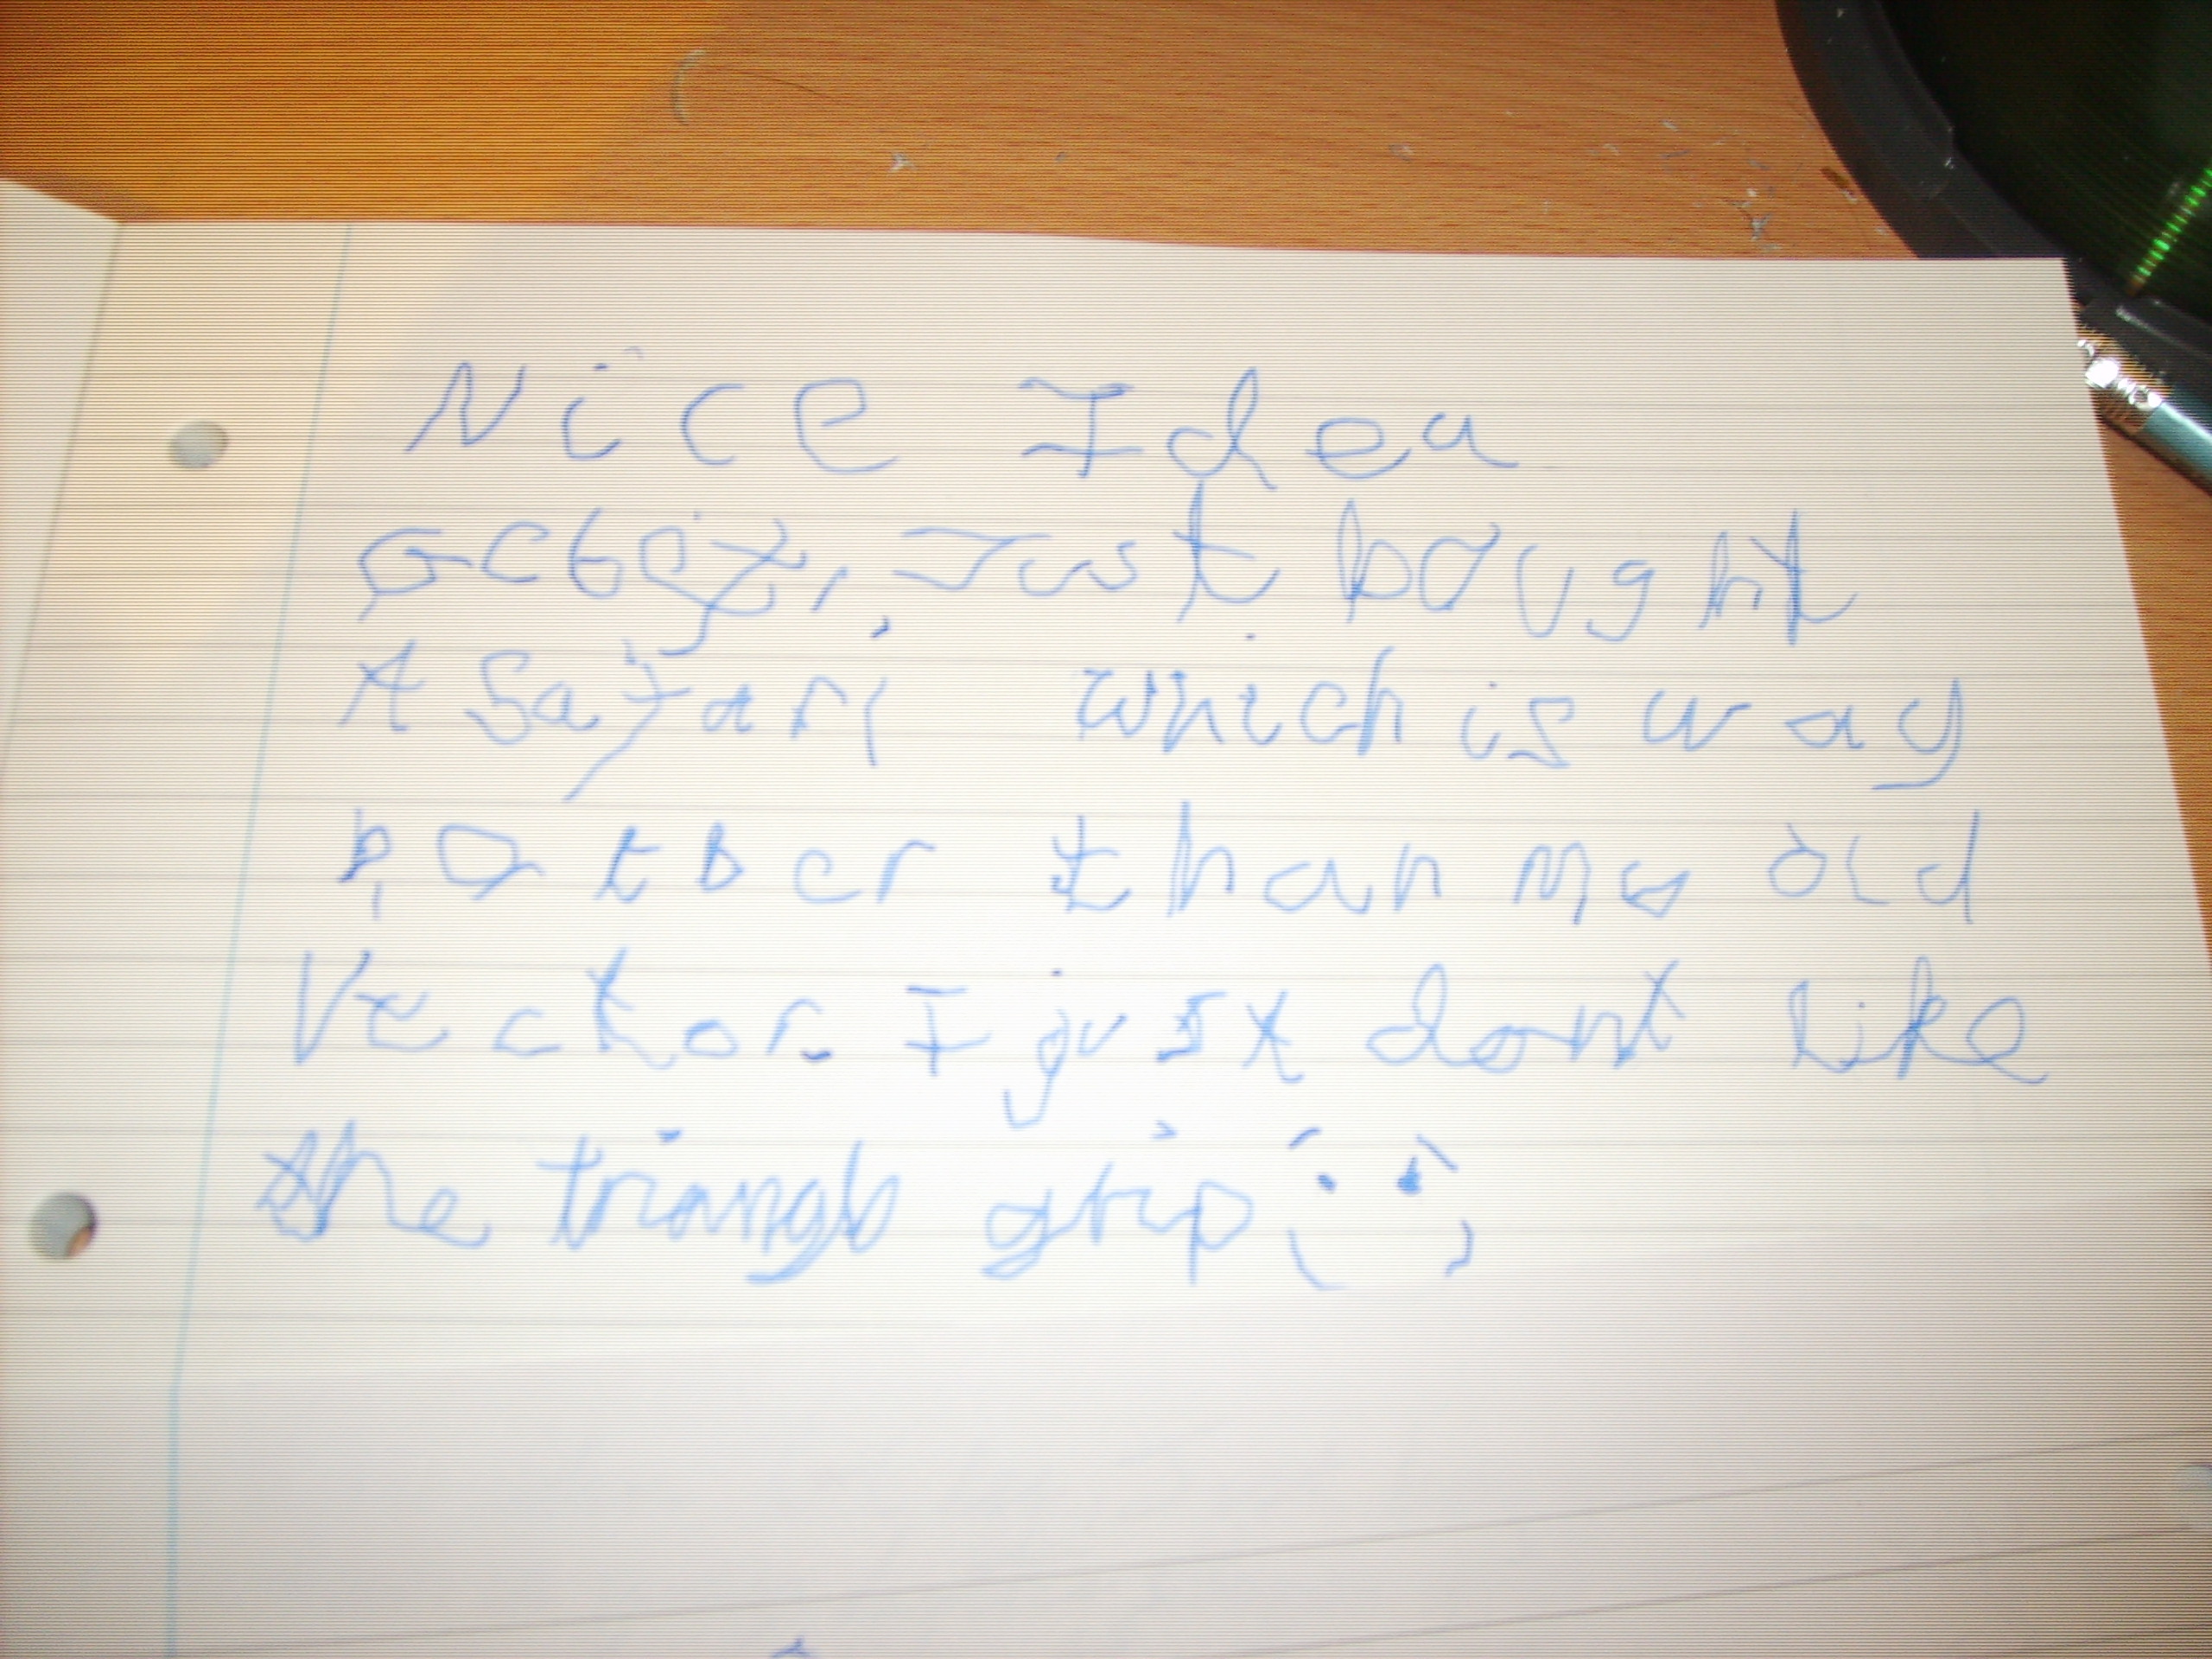 Nice Idea
Just bought
A Safari which is way
than my old
Vector. I just dont like
the triangle grip